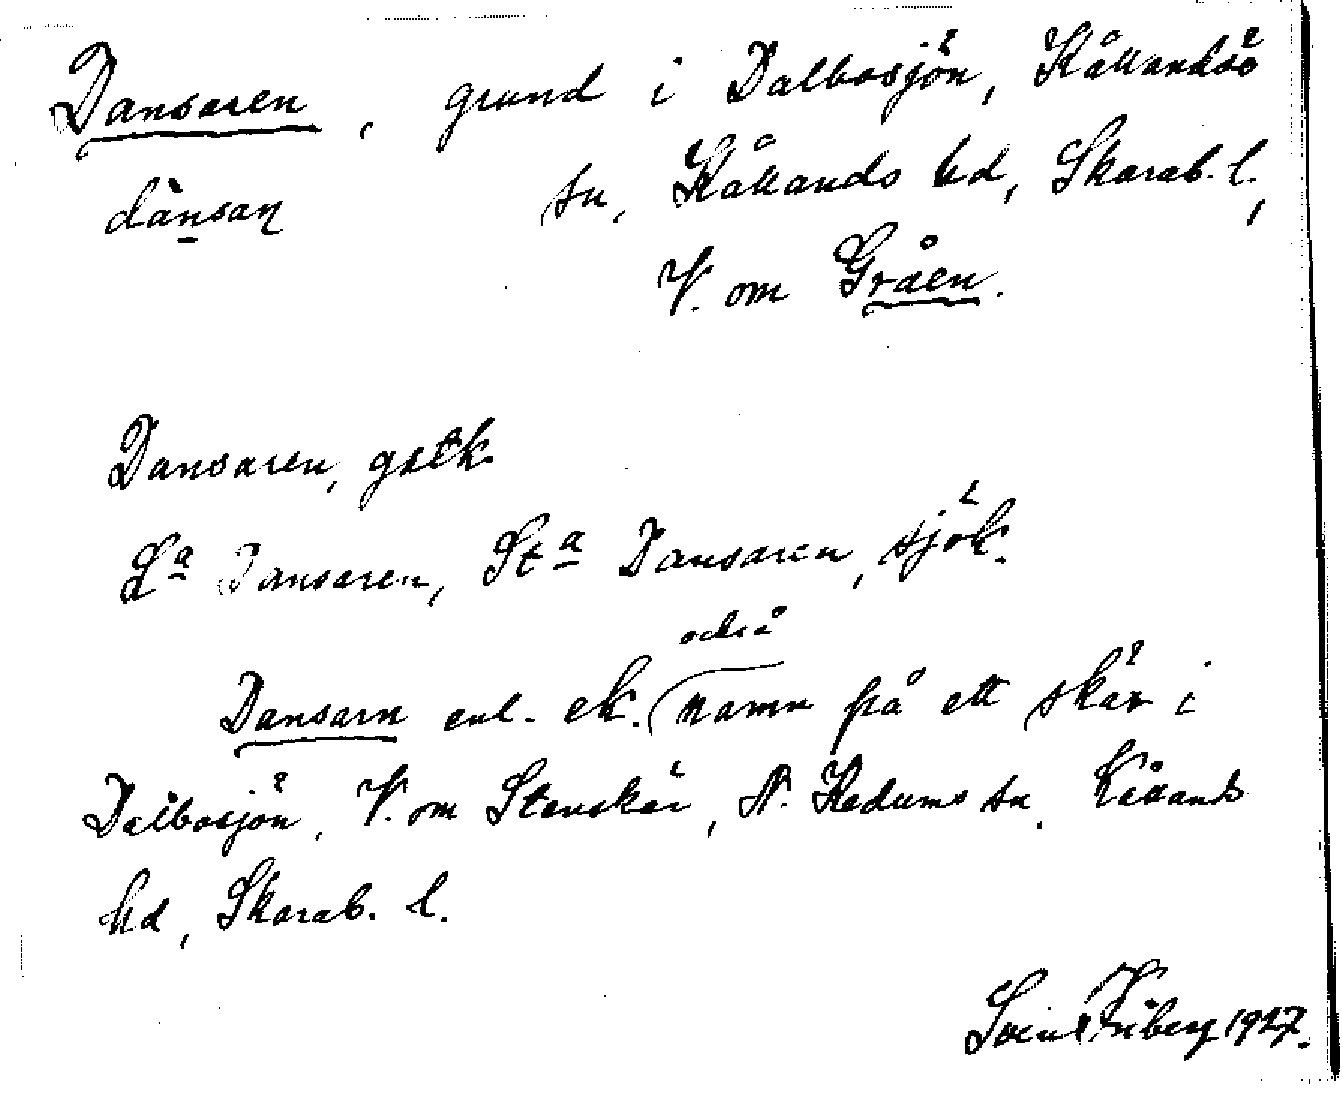 Dansaren, grund i Dalbosjön, Kållandsö
dansaɳ sn, Kållands hd, Skarab. l.,
V. om Gråen.
Dansaren, gstk
La Dansaren, Sta Dansaren, sjök.
också
Dansarn enl. ek. namn på ett skär i
Dalbosjön, V. om Stenskär, N. Hedums sn, Kållands
hd, Skarab. l.
1927.